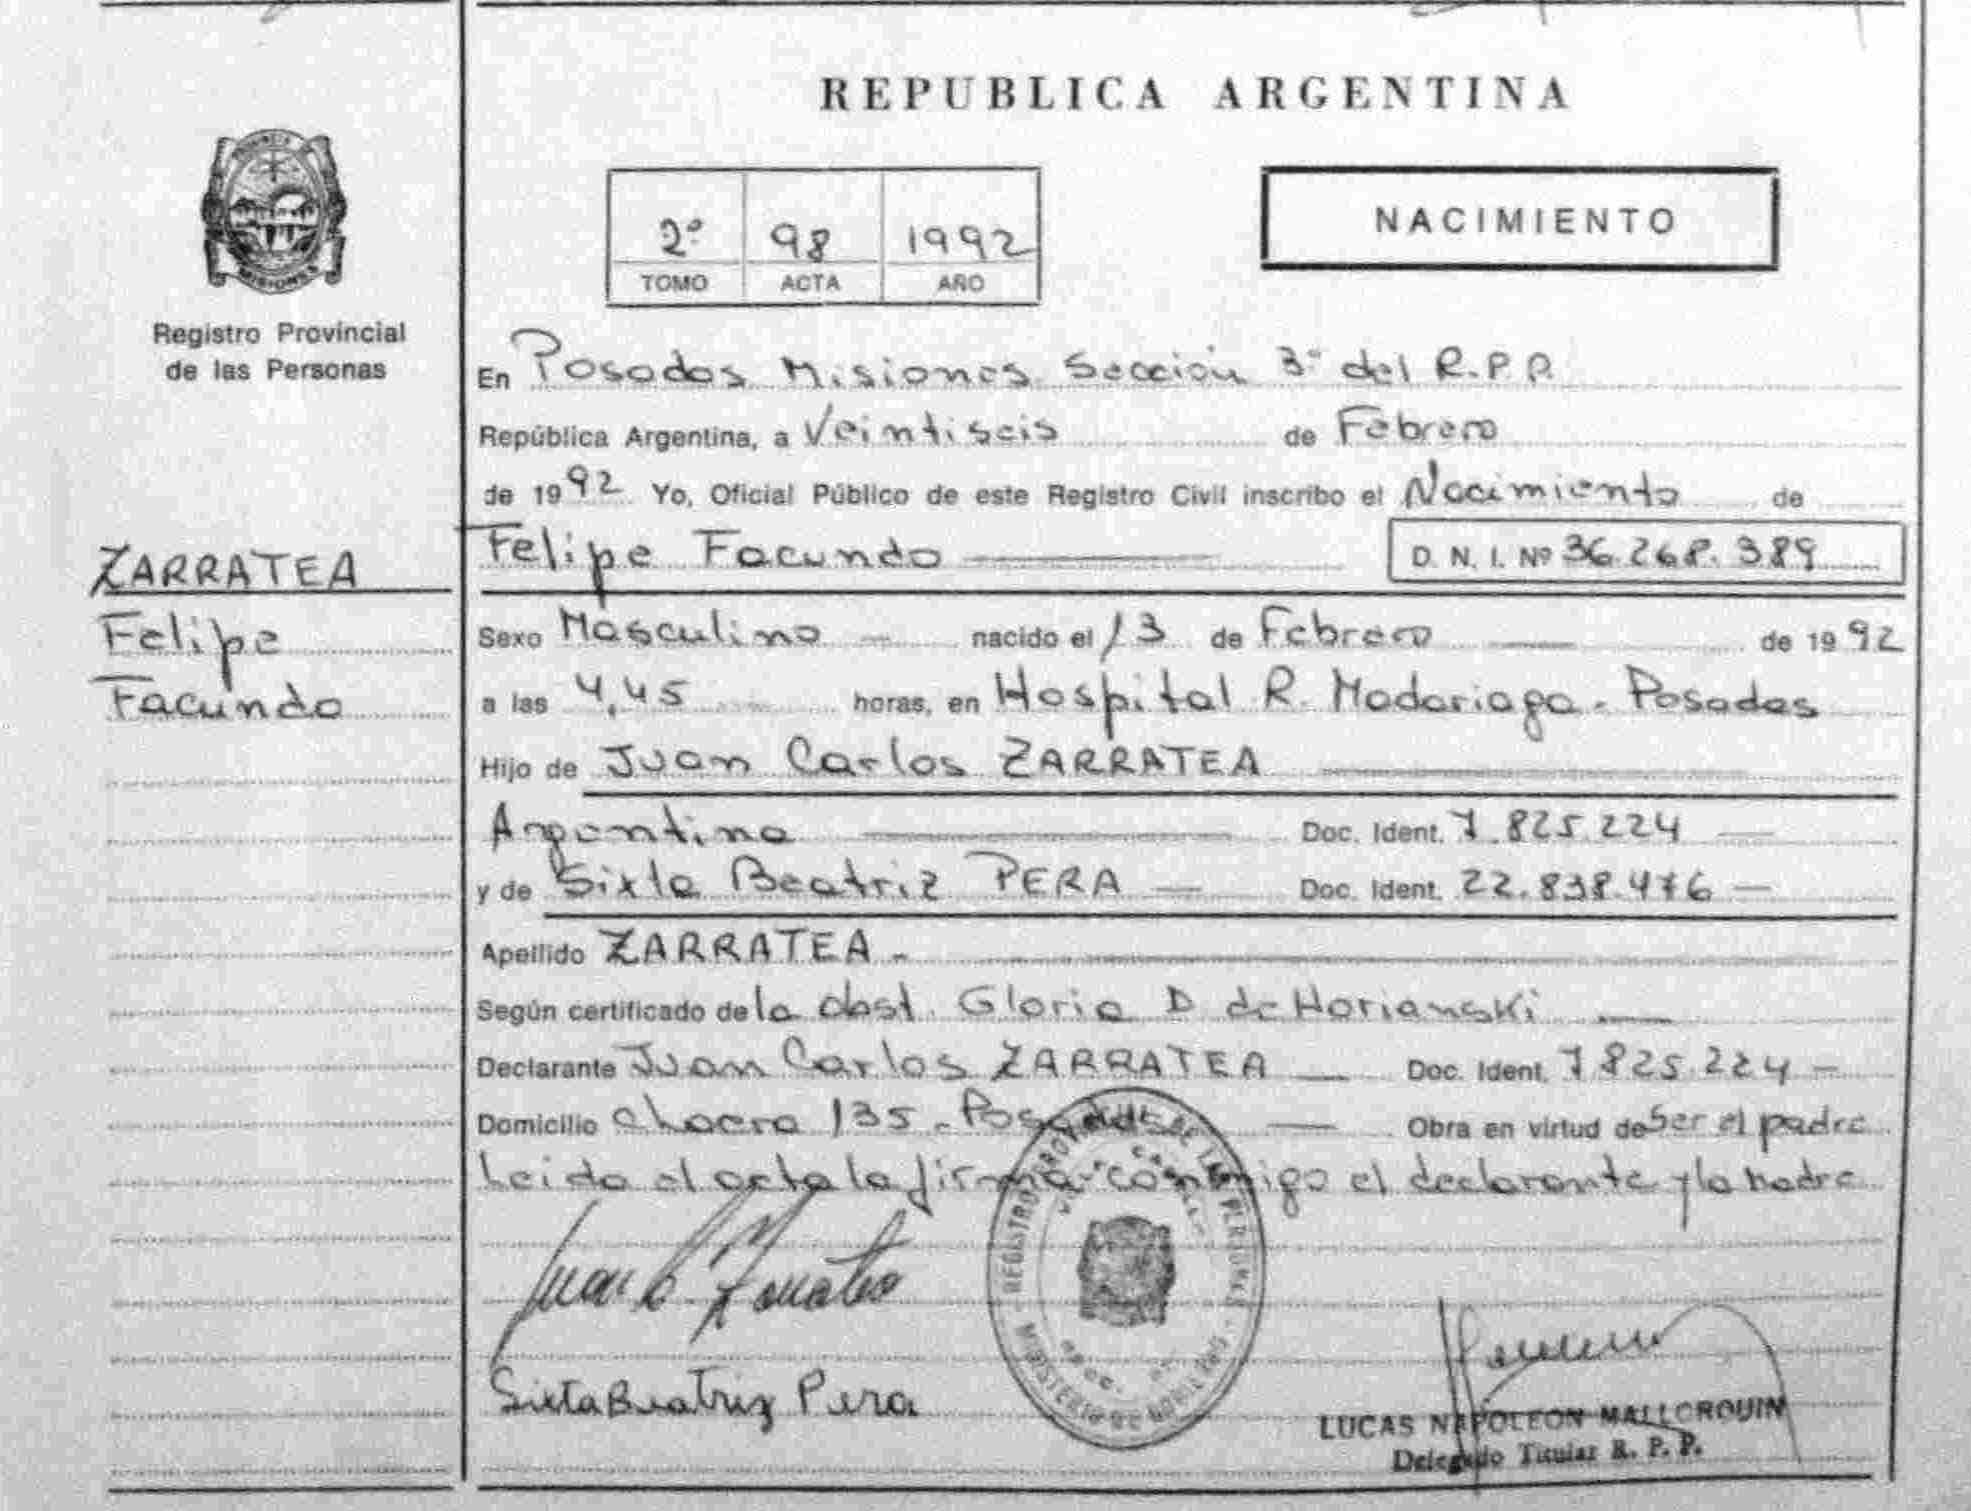 REPUBLICA ARGENTINA
2º 98 1992
TOMO ACTA AÑO
NACIMIENTO
Registro Provincial
de las Personas
ZARRATEA
Felipe
Facundo
En Posadas Misiones Sección 3º del R.P.P.
República Argentina, a Veintiseis de Febrero
de 1992 Yo, Oficial Público de este Registro Civil inscribo el Nacimiento de
Felipe Facundo D. N. I. Nº 36.268.389
Sexo Masculino nacido el 13 de Febrero de 1992
a las 4,45 horas, en Hospital R. Madariaga - Posadas
Hijo de Juan Carlos ZARRATEA
Argentino Doc. Ident. 7.825.224
y de Sixta Beatriz PERA Doc. Ident. 22.838.476
Apellido ZARRATEA -
Según certificado de la obst. Gloria D de Horianski
Declarante Juan Carlos ZARRATEA Doc. Ident. 7.825.224 -
Domicilio Chacra 135 - Posadas Obra en virtud de ser el padre
Leida el acta la firma conmigo el declarante y la madre
Sixta Beatriz Pera
REGISTRO PROVINCIAL DE LAS PERSONAS
LUCAS NAPOLEON MALLORQUIN
Delegado Titular R. P. P.